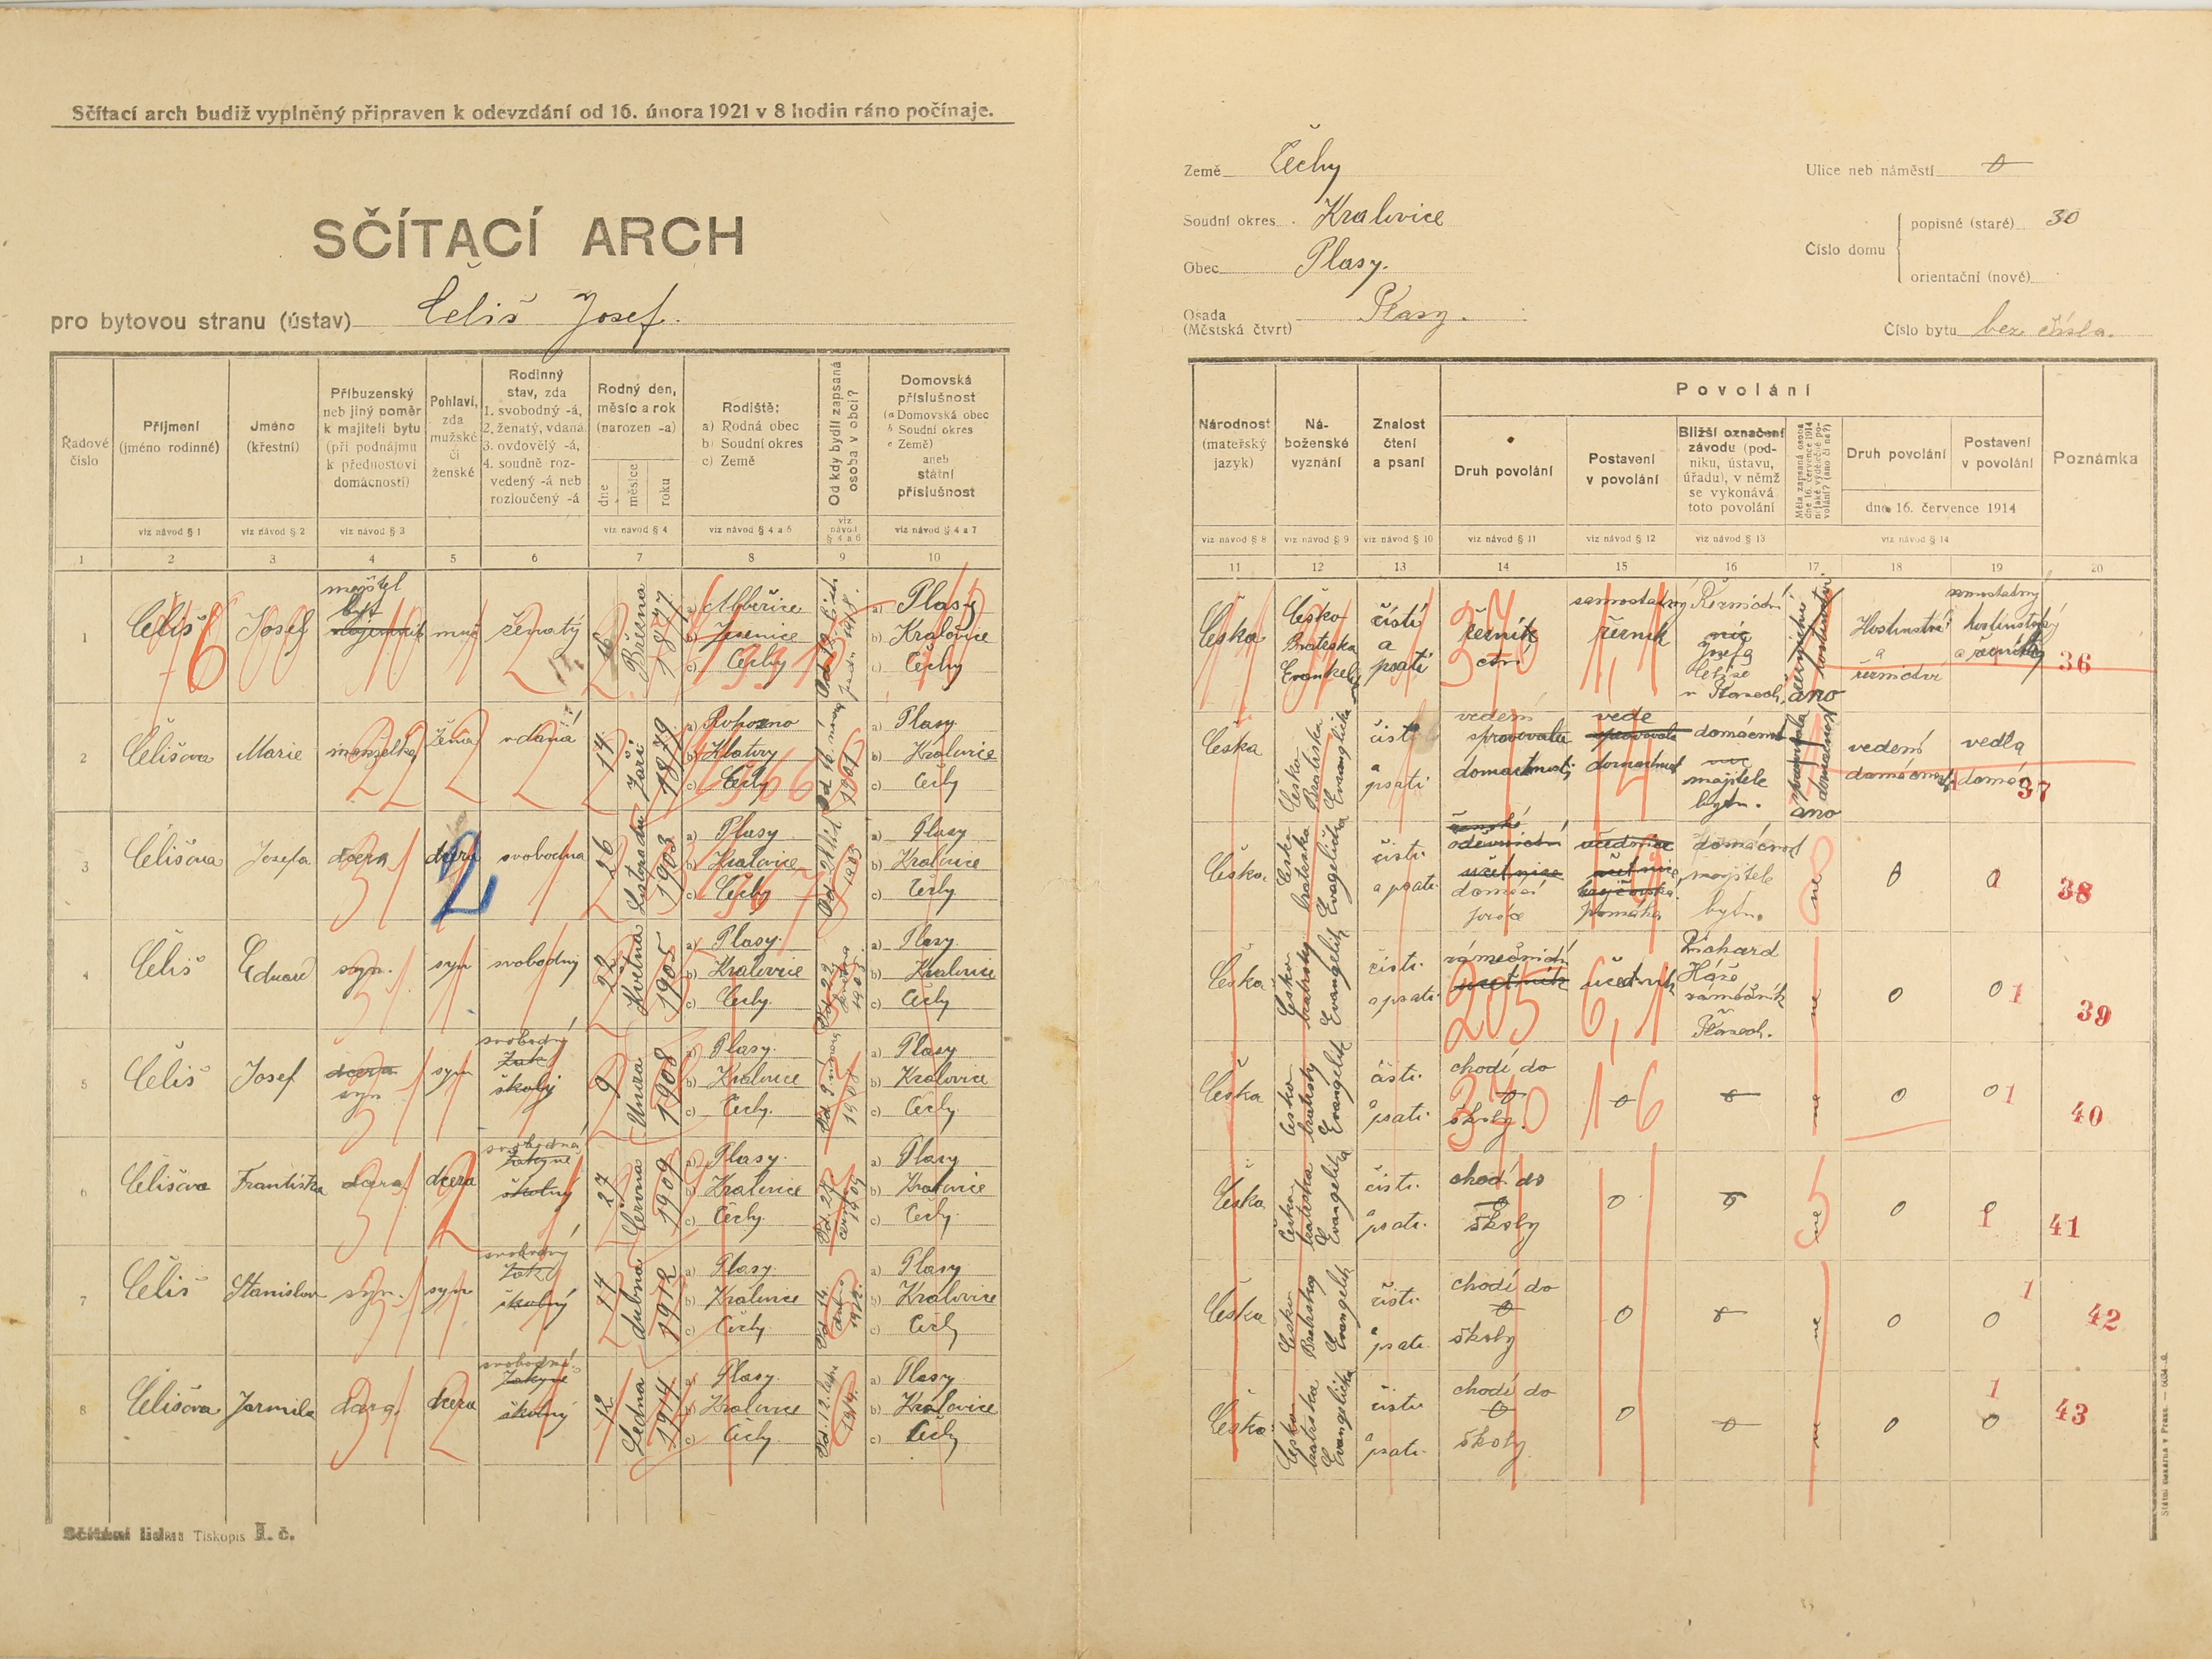 Sčítací arch budiž vyplněný připraven k odevzdání od 16. února 1921 v 8 hodin ráno počínaje.
SČÍTACÍ ARCH
pro bytovou stranu (ústav) Čeliš Josef.
Země Čechy
Soudní okres Kralovice
Obec Plasy.
Osada
(Městská čtvrť) Plasy.
Ulice neb náměstí 0
Číslo domu
popisné (staré) 30
orientační (nové)
Číslo bytu bez čísla.
Řadové číslo
Příjmení (jméno rodinné)
Jméno (křestní)
Příbuzenský neb jiný poměr k majiteli bytu (při podnájmu k přednostovi domácnosti)
Pohlaví, zda mužské či ženské
Rodinný stav, zda 1. svobodný -á, 2. ženatý, vdaná, 3. ovdovělý -á, 4. soudně rozvedený -á neb rozloučený -á
Rodný den, měsíc a rok (narozen -a)
dne měsíce roku
Rodiště: a) Rodná obec b) Soudní okres c) Země
Od kdy bydlí zapsaná osoba v obci?
Domovská příslušnost (a Domovská obec b Soudní okres c Země) aneb státní příslušnost
viz návod § 1 viz návod § 2 viz návod § 3 viz návod § 4 viz návod § 4 a 5 viz návod § 4 a 6 viz návod § 4 a 7
1 2 3 4 5 6 7 8 9 10
1 Čeliš Josef majitel byt muž ženatý 16 Března 1877
a) b) Jesenice c) Čechy
a) Plasy b) Kralovice c) Čechy
2 Čelišova Marie manželka žena vdaná 14 Září 1879
a) b) Klatovy c) Čechy
1901
a) Plasy. b) Kralovice c) Čechy
3 Čelišova Josefa dcera dcera svobodna 26 Listopadu 1903
a) Plasy b) Kralovice c) Čechy
1903
a) Plasy b) Kralovice c) Čechy
4 Čeliš Eduard syn. syn svobodny 22 Května 1905
a) Plasy. b) Kralovice c) Čechy.
a) Plasy. b) Kralovice c) Čechy
5 Čeliš Josef dcera syn syn svobodný žak školný 9 Unora 1908
a) Plasy. b) Kralovice c) Čechy.
Od 9 unora 1908
a) Plasy b) Kralovice c) Čechy.
6 Čelišova Františka dcera dcera svobodná žakyně školný 27 Června 1909
a) Plasy. b) Kralovice c) Čechy.
Od 27 června 1909
a) Plasy b) Kralovice c) Čechy.
7 Čeliš Stanislav syn. syn svobodný žak školný 14 dubna 1912
a) Plasy. b) Kralovice c) Čechy.
Od 14. dubna 1912.
a) Plasy b) Kralovice c) Čechy
8 Čelišova Jarmila dcera dcera svobodná žakyně školný 12 Ledna 1914
a) Plasy. b) Kralovice c) Čechy.
Od 12. ledna 1914.
a) Plasy b) Kralovice c) Čechy
Sčítání lidu: Tiskopis I. č.
Národnost (mateřský jazyk)
Náboženské vyznání
Znalost čtení a psaní
Povolání
Druh povolání
Postavení v povolání
Bližší označení závodu (podniku, ústavu, úřadu), v němž se vykonává toto povolání
Měla zapsaná osoba dne 16. července 1914 nějaké výdělečné povolání? (ano či ne?)
Druh povolání
Postavení v povolání
dne 16. července 1914
Poznámka
viz návod § 8 viz návod § 9 viz návod § 10 viz návod § 11 viz návod § 12 viz návod § 13 viz návod § 14
11 12 13 14 15 16 17 18 19 20
Česka Česko Bratrska čísti a psati řezník samostatný řezník Řeznictví Josefa Čeliše v Plasech ano Hostinství a řeznictví samostatný hostinský a řezník 36
Česka Česko Bratrska Evangelicka čisti a psati vedení domacnosti vede domacnost domácnost majitele bytu. ano vedení domácnosti vedla 37
Česka. Česko bratrska Evagelička čisti a psati. domácí práce pomáha domácnost majitele bytu. ne 0 0 38
Česka Česko bratrsky Evangelik čisti a psati zámečnictví 205 učedník 6,1 zámečník v Plasech. ne 0 0 1 39
Česka Česko bratrsky Evangelik čisti a psati. chodí do školy. 370 0 1 6 0 ne 0 0 1 40
Česka Česko bratrska Evangelička čisti. a psati. chodí do školy 0 0 ne 0 1 41
Česka Česko Bratrsky Evangelik čisti. a psati. chodí do školy 0 0 ne 0 0 1 42
Česka. Česko bratrska Evangelicka čisti a psati. chodí do školy. 0 0 ne 0 0 1 43